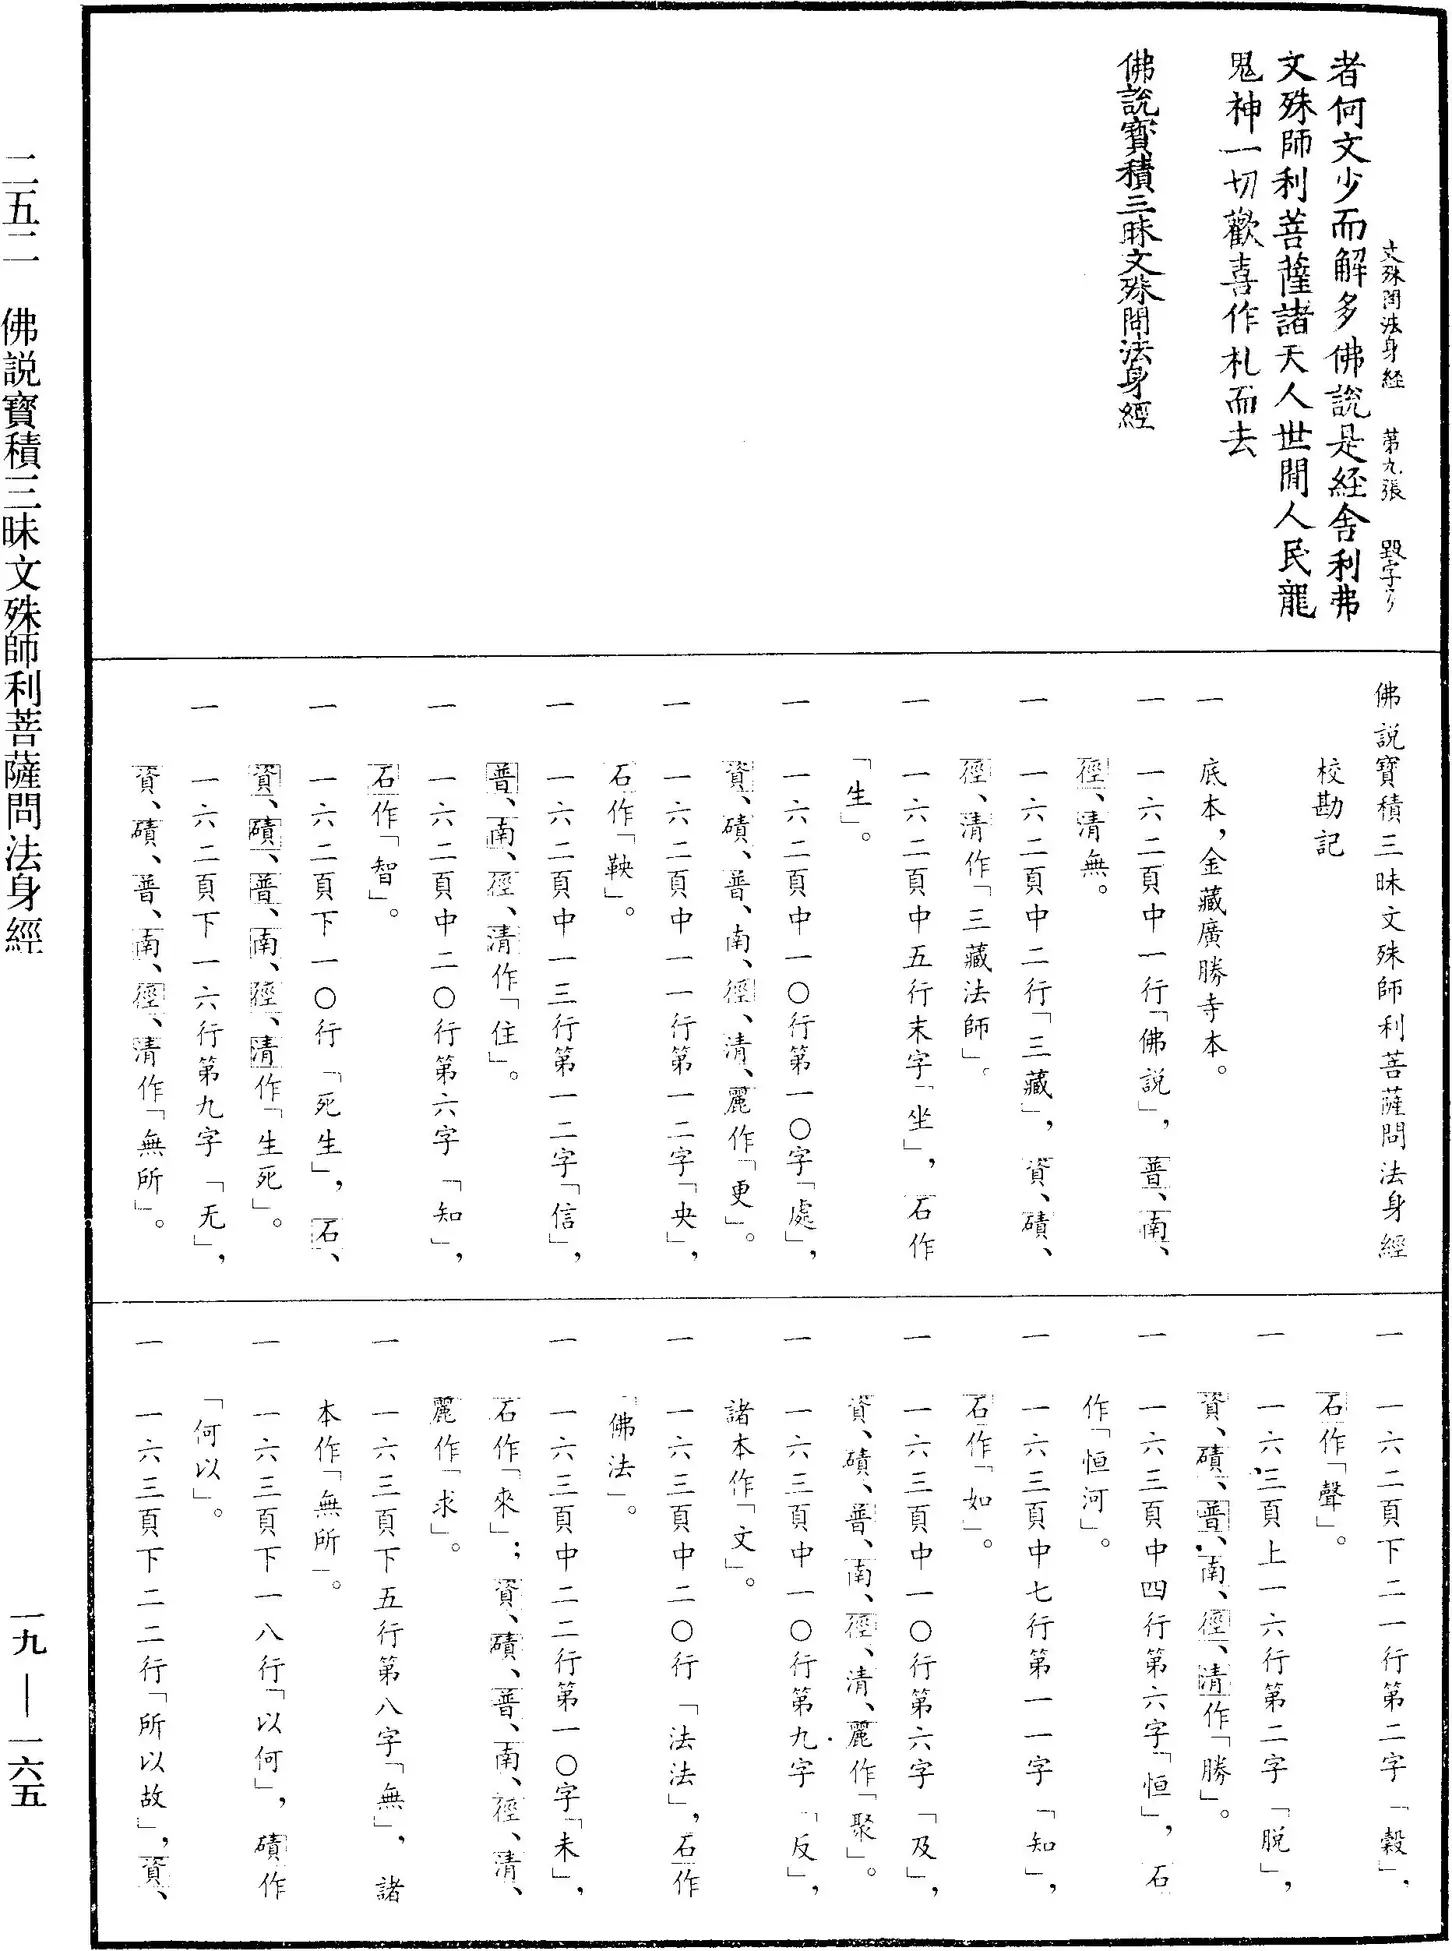 文殊問法身經　第九張　毀字号
者何文少而解多佛說是經舍利弗
文殊師利菩薩諸天人世間人民龍
鬼神一切歡喜作礼而去
佛說寶積三昧文殊問法身經
佛說寶積三昧文殊師利菩薩問法身經
校勘記
一　底本，金藏廣勝寺本。
一　一六二頁中一行「佛說」，普、南、
徑、清無。
一　一六二頁中二行「三藏」，資、磧、
徑、清作「三藏法師」。
一　一六二頁中五行末字「坐」，石作
「生」。
一　一六二頁中一〇行第一〇字「處」，
資、磧、普、南、徑、清、麗作「更」。
一　一六二頁中一一行第一二字「央」，
石作「鞅」。
一　一六二頁中一三行第一二字「信」，
普、南、徑、清作「住」。
一　一六二頁中二〇行第六字「知」，
石作「智」。
一　一六二頁下一〇行「死生」，石、
資、磧、普、南、徑、清作「生死」。
一　一六二頁下一六行第九字「无」，
資、磧、普、南、徑、清作「無所」。
一　一六二頁下二一行第二字「穀」，
石作「聲」。
一　一六三頁上一六行第二字「脱」，
資、磧、普、南、徑、清作「勝」。
一　一六三頁中四行第六字「恒」，石
作「恒河」。
一　一六三頁中七行第一一字「知」，
石作「如」。
一　一六三頁中一〇行第六字「及」，
資、磧、普、南、徑、清、麗作「聚」。
一　一六三頁中一〇行第九字「反」，
諸本作「文」。
一　一六三頁中二〇行「法法」，石作
「佛法」。
一　一六三頁中二二行第一〇字「未」，
石作「來」；資、磧、普、南、徑、清、
麗作「求」。
一　一六三頁下五行第八字「無」，諸
本作「無所」。
一　一六三頁下一八行「以何」，磧作
「何以」。
一　一六三頁下二二行「所以故」，資、
二五二　佛説寶積三昧文殊師利菩薩問法身經
一九—一六五